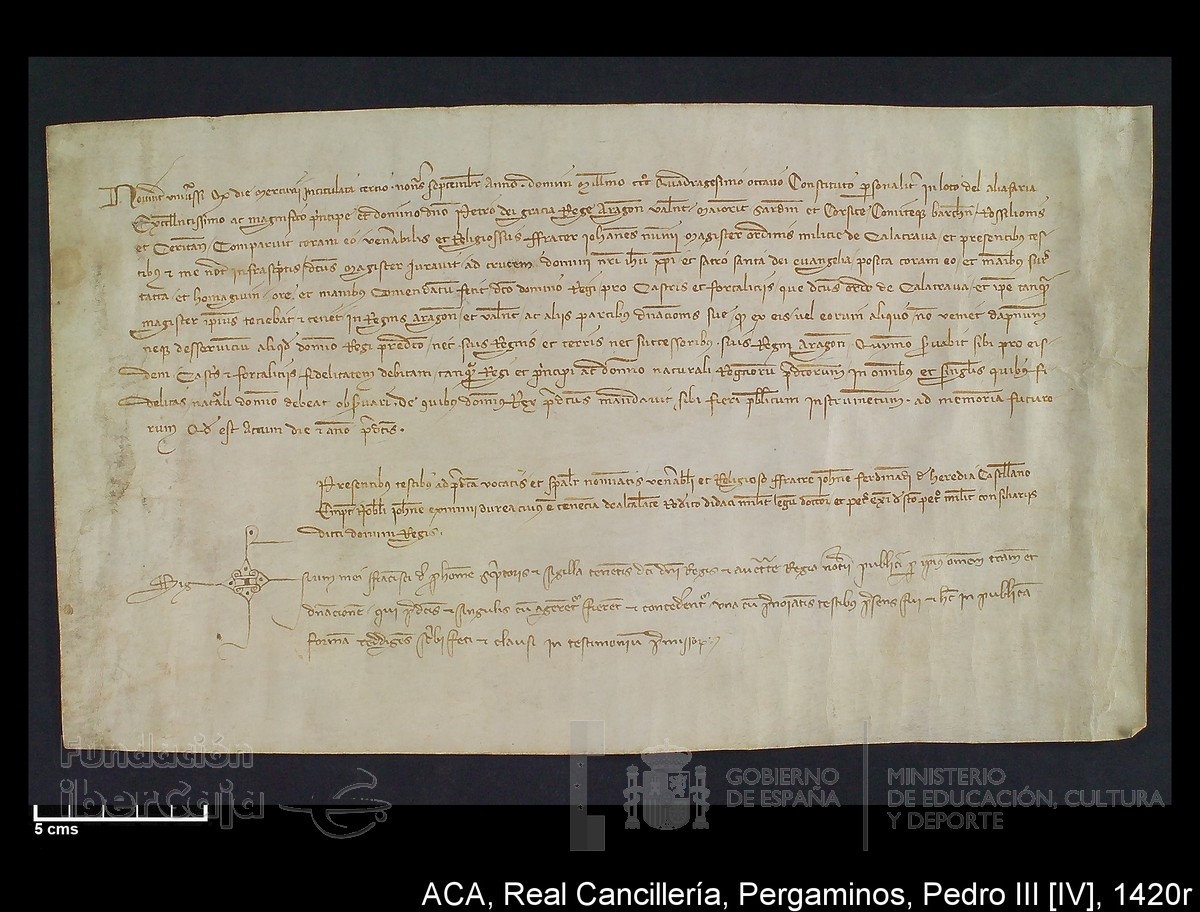 Noverint universi Qd die mercurij Intitulata tercio nonas septembr Anno domini Millmo CCCo Quadragesimo octavo Constituto personaliter in loco del aliafaria
Excellentissimo ac magnifico principe et domino dno Petro dei gracia Rege Aragon Valent Maioric Sardin et Corsice Comiteqz barchn Rossilionis
et Ceritan Comparuit coram eo venerabilis et Religiosus ffrater Iohannes nunni magister ordinis milicie de Calatrava et presentibus tes-
tibus et me not infrascriptis dictus Magister Iuravit ad crucem domini nri ihu xpi et sacro santa dei evangelia posita coram eo et manibus suis
tacta et homagium ore et manibus Comendatum fecit dco domino Regi pro Castris et fortaliciis que dictus ordo de Calatrava et ipse tanqm
magister ipsius tenebat et tenet in Regnis Aragon et Valent ac aliis partibus dnacionis sue qd ex eis vel eorum aliquo no veniet dapnum
neqz desservicium aliqd domino Regi predicto nec suis Regnis et terris nec successoribus suis Regni Aragon Quinimo servabit sibi pro eis-
dem Castris et fortaliciis fidelitatem debitam tanqm Regi et principi ac domino naturali Regnorum predictorum In omnibus et singulis quibus fi-
delitas naturali domino debeat observari. De quibus dominus Rex predictus mandavit sibi fieri publicum Instrumentum. ad memoria futuro
rum Qd est Actum die et anno predictis.
Presentibus testibus ad predicta vocatis et specialiter nominatis venerabili et Religioso ffratre Iohanne Ferdinandi de heredia Castellano
Empt Nobli Iohanne eximini durea
dicti domini Regis.
Sig
num mei ffrancisci de scriptoris et sigilla tenentis dci dni Regis et auctte Regia notarii publici per totam terram et
dnacionem qui predictis et singulis cum agerentur fierent et concederentur una cum prenominatis testibus presens fui et hec in publicam
formam reddigens scribi feci et clausi in testimonium premissorum
Fundación
iberCaja
5 cms
GOBIERNO
DE ESPAÑA
MINISTERIO
DE EDUCACIÓN, CULTURA
Y DEPORTE
ACA, Real Cancillería, Pergaminos, Pedro III [IV], 1420r